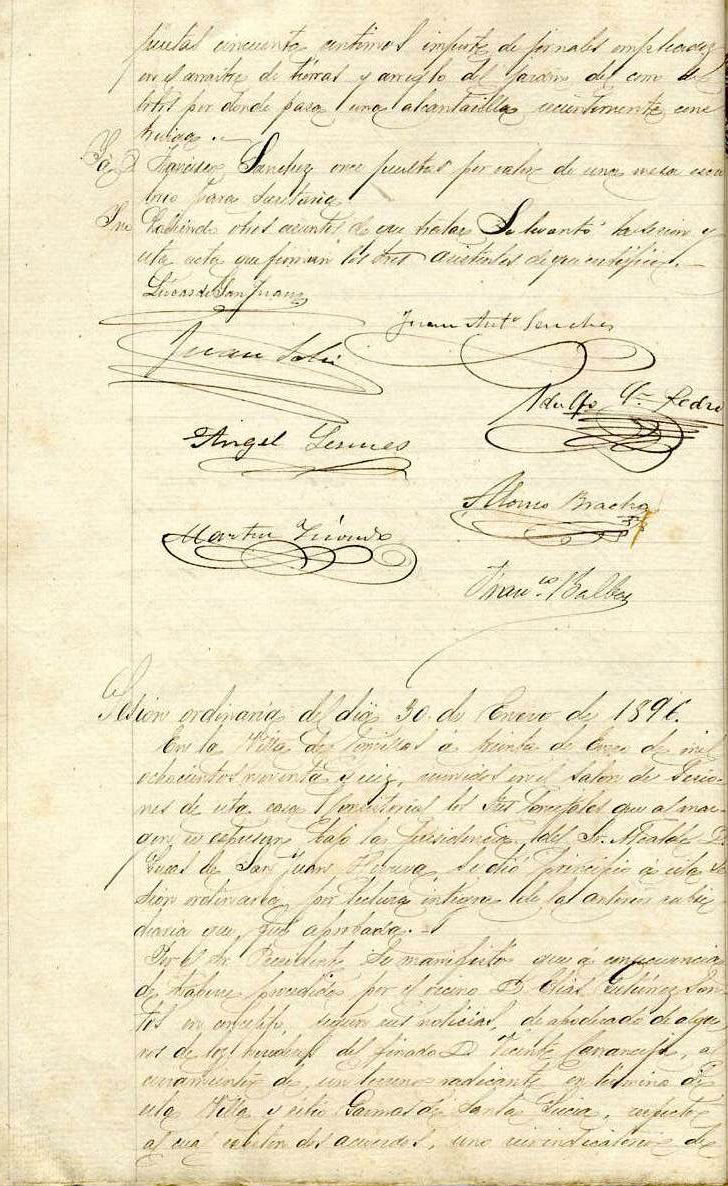 pesetas cincuenta centimos importe de jornales empleados
en el arrastre de tierras y arreglo del Jardin del
por donde pasa una alcantarilla recientemente cons
truida.
Francisco Sanchez once pesetas por valor de una mesa escri
torio para Secretaria
No habiendo otros asuntos de que tratar Se levantó la sesion y
esta acta que firman los Sres asistentes de que certifico.
Lucas de San Juan
Juan Antº Sanchez
Juan
Adolfo Gª Pedro
Angel Lesmes
Alonso
Martin
Franco Balboa
Sesion ordinaria del dia 30 de Enero de 1896.
En la Villa de á treinta de Enero de mil
ochocientos noventa y seis, reunidos en el Salon de Sesio-
nes de esta casa Consistorial los Sres Concejales que al mar-
gen se espresan bajo la presidencia del Sr. Alcalde D.
Lucas de San Juan se dió principio á esta se
sion ordinaria por lectura integra de la anterior
diaria que fué aprobada.
Por el Sr. Presidente Se manifestó que á consecuencia
de haberse procedido por el vecino D. Elias Gutierrez San-
tos en concepto, segun sus noticias, de de algu-
nos de los herederos del finado D. Vicente , al
cerramiento de un terreno radicante en termino de
esta Villa y sitio de Santa Lucia, respecto
al cual existen dos acuerdos, uno reivindicatorio de